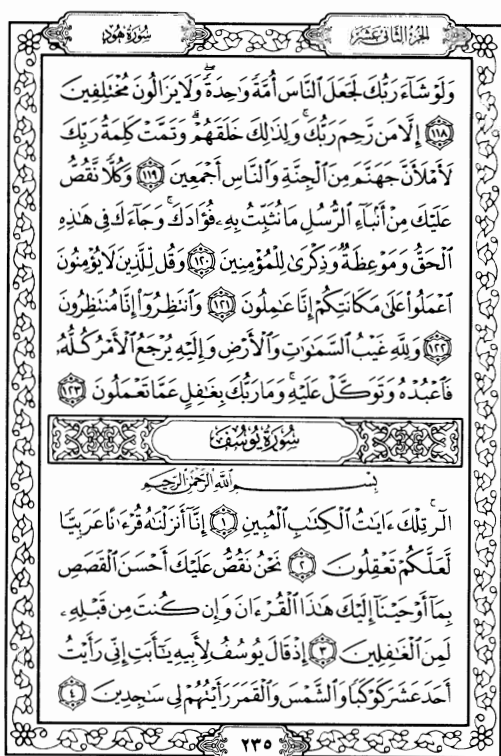 سُورَةُ هُودٍ
الجُزْءُ الثَّانِي عَشَرَ
وَلَوْ شَآءَ رَبُّكَ لَجَعَلَ ٱلنَّاسَ أُمَّةً وَٰحِدَةً ۖ وَلَا يَزَالُونَ مُخْتَلِفِينَ
١١٨ إِلَّا مَن رَّحِمَ رَبُّكَ ۚ وَلِذَٰلِكَ خَلَقَهُمْ ۗ وَتَمَّتْ كَلِمَةُ رَبِّكَ
لَأَمْلَأَنَّ جَهَنَّمَ مِنَ ٱلْجِنَّةِ وَٱلنَّاسِ أَجْمَعِينَ ١١٩ وَكُلًّا نَّقُصُّ
عَلَيْكَ مِنْ أَنۢبَآءِ ٱلرُّسُلِ مَا نُثَبِّتُ بِهِۦ فُؤَادَكَ ۚ وَجَآءَكَ فِى هَٰذِهِ
ٱلْحَقُّ وَمَوْعِظَةٌ وَذِكْرَىٰ لِلْمُؤْمِنِينَ ١٢٠ وَقُل لِّلَّذِينَ لَا يُؤْمِنُونَ
ٱعْمَلُوا۟ عَلَىٰ مَكَانَتِكُمْ إِنَّا عَٰمِلُونَ ١٢١ وَٱنتَظِرُوٓا۟ إِنَّا مُنتَظِرُونَ
١٢٢ وَلِلَّهِ غَيْبُ ٱلسَّمَٰوَٰتِ وَٱلْأَرْضِ وَإِلَيْهِ يُرْجَعُ ٱلْأَمْرُ كُلُّهُۥ
فَٱعْبُدْهُ وَتَوَكَّلْ عَلَيْهِ ۚ وَمَا رَبُّكَ بِغَٰفِلٍ عَمَّا تَعْمَلُونَ ١٢٣
سُورَةُ يُوسُفَ
بِسْمِ ٱللَّهِ ٱلرَّحْمَٰنِ ٱلرَّحِيمِ
الٓر ۚ تِلْكَ ءَايَٰتُ ٱلْكِتَٰبِ ٱلْمُبِينِ ١ إِنَّآ أَنزَلْنَٰهُ قُرْءَٰنًا عَرَبِيًّا
لَّعَلَّكُمْ تَعْقِلُونَ ٢ نَحْنُ نَقُصُّ عَلَيْكَ أَحْسَنَ ٱلْقَصَصِ
بِمَآ أَوْحَيْنَآ إِلَيْكَ هَٰذَا ٱلْقُرْءَانَ وَإِن كُنتَ مِن قَبْلِهِۦ
لَمِنَ ٱلْغَٰفِلِينَ ٣ إِذْ قَالَ يُوسُفُ لِأَبِيهِ يَٰٓأَبَتِ إِنِّى رَأَيْتُ
أَحَدَ عَشَرَ كَوْكَبًا وَٱلشَّمْسَ وَٱلْقَمَرَ رَأَيْتُهُمْ لِى سَٰجِدِينَ ٤
٢٣٥